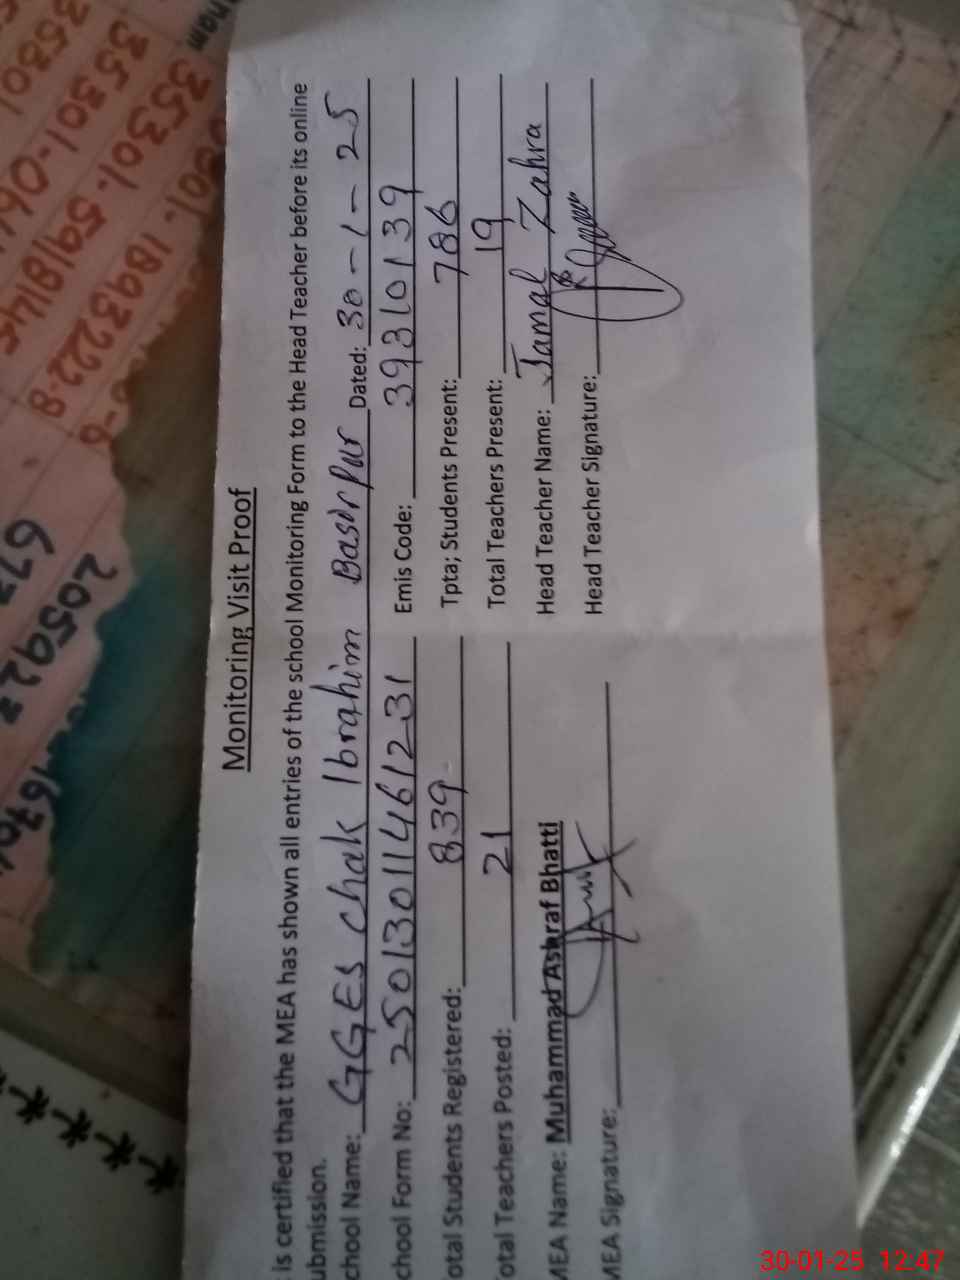 Monitoring Visit Proof
is certified that the MEA has shown all entries of the school Monitoring Form to the Head Teacher before its online
ubmission.
chool Name: GGES Chak Ibrahim Basirpur Dated: 30-1-25
chool Form No: 25013011461231 Emis Code: 39310139
otal Students Registered: 839 Tpta; Students Present: 786
otal Teachers Posted: 21 Total Teachers Present: 19
MEA Name: Muhammad Ashraf Bhatti Head Teacher Name: Jamal Zahra
MEA Signature: Head Teacher Signature:
30-01-25 12:47